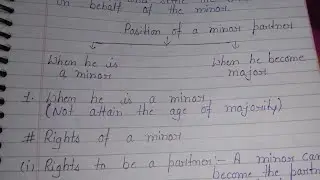 on behalf of the minor
Position of a minor partner
When he is
a minor
When he become
major
1. When he is a minor
(Not attain the age of majority)
# Rights of a minor
(i) Rights to be a partner :- A minor can
become the partn